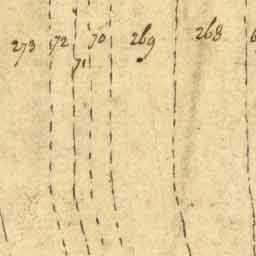 273 72 71 70 269 268